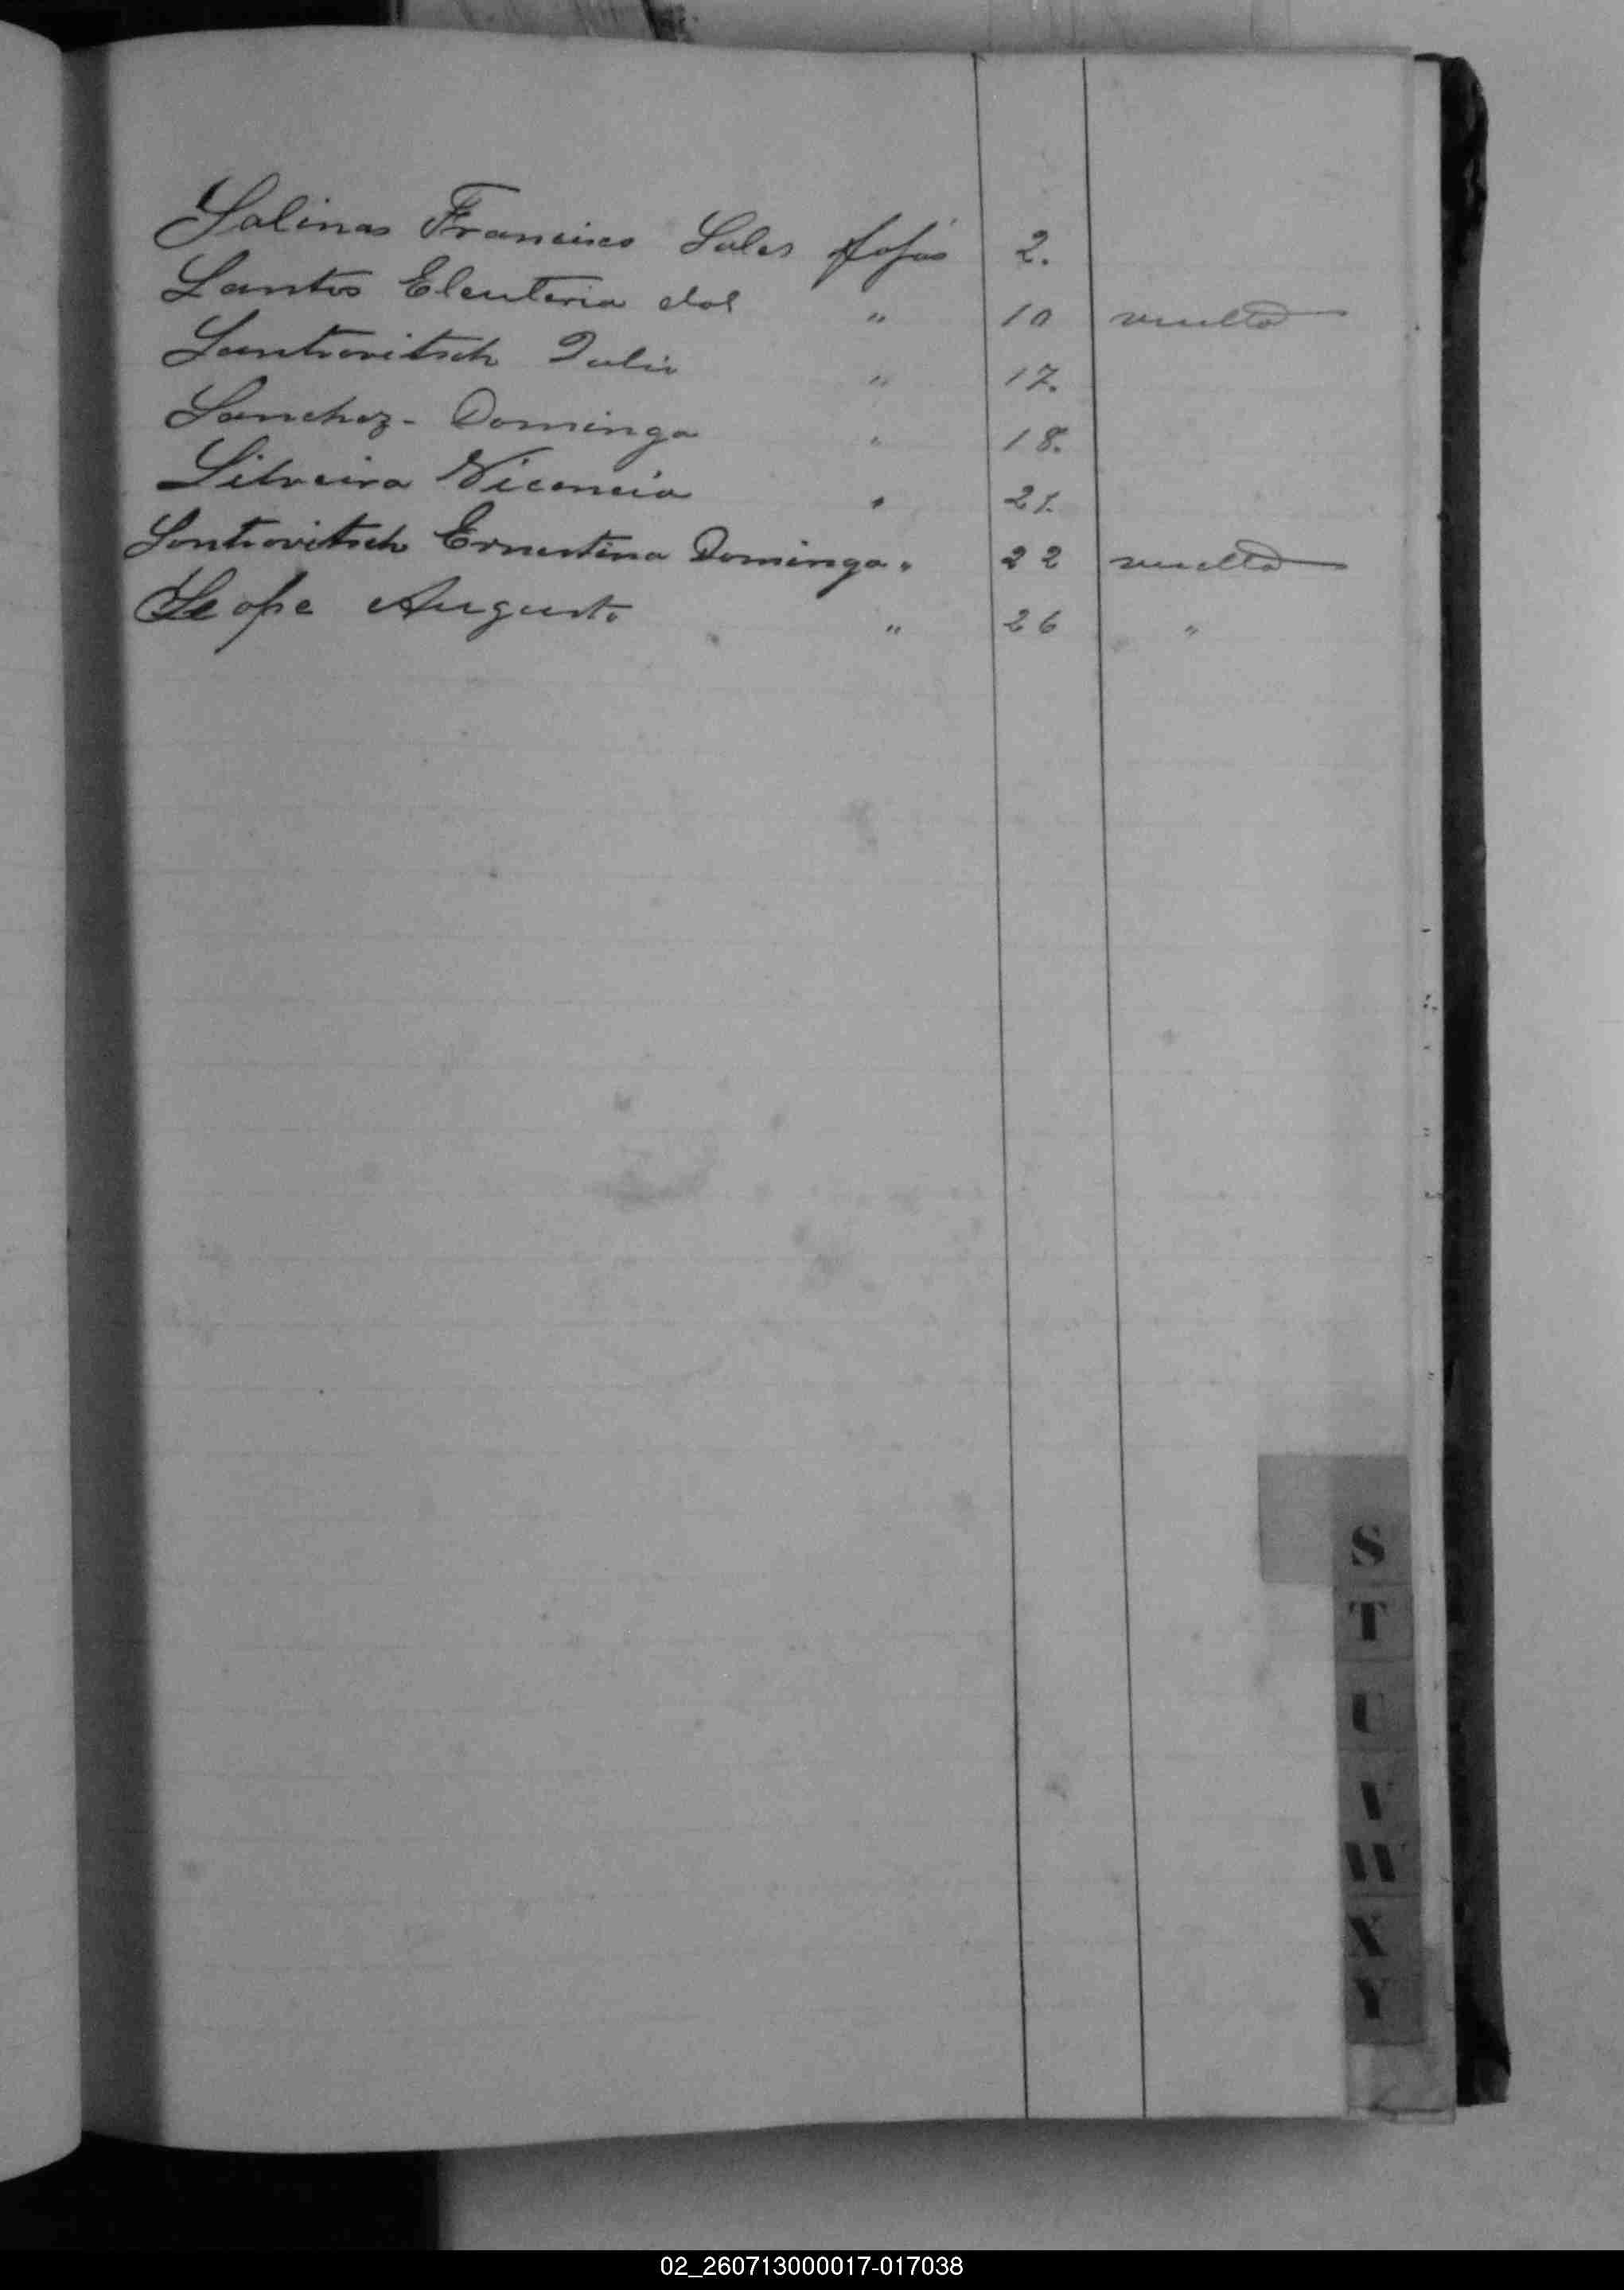 Salinas Francisco Sales fojas 2.
Santos Eleuteria dos " 10 vuelta
Santrovitsch Julio " 17.
Sanchez - Dominga " 18.
Silveira Nicencia " 21.
Santrovitsch Ernestina Dominga " 22 vuelta
Augusto " 26 "
S
T
U
V
W
X
Y
02_260713000017-017038